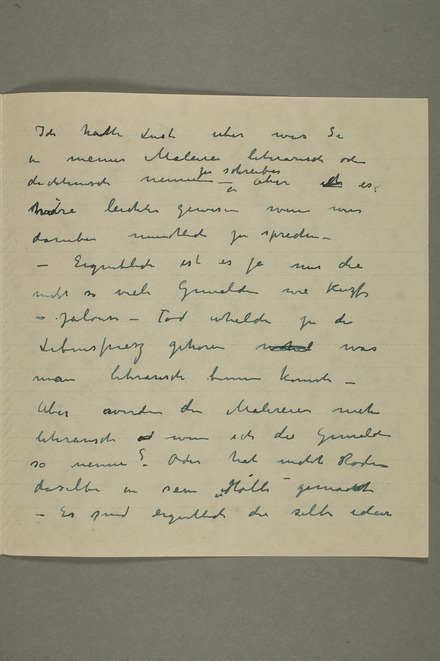 Ich hatte Lust über was Sie
in meiner Malerei literarisch oder
dichterisch nennen zu schreiben – aber es
wäre leichter gewesen wenn wir
darüber mundtlich zu sprechen –
– Eigentlich ist es ja nur die
nicht so viele Gemälde wie
– Jalousi – Tod welche zu die
gehören was
man literarisch kennen konnte –
Aber werden die Malereien mehr
literarisch wenn ich die Gemälde
so nenne? Oder hat nicht Rodin
dasselbe in sein "Hölle" gemacht
– Es sind eigentlich die selbe ideer